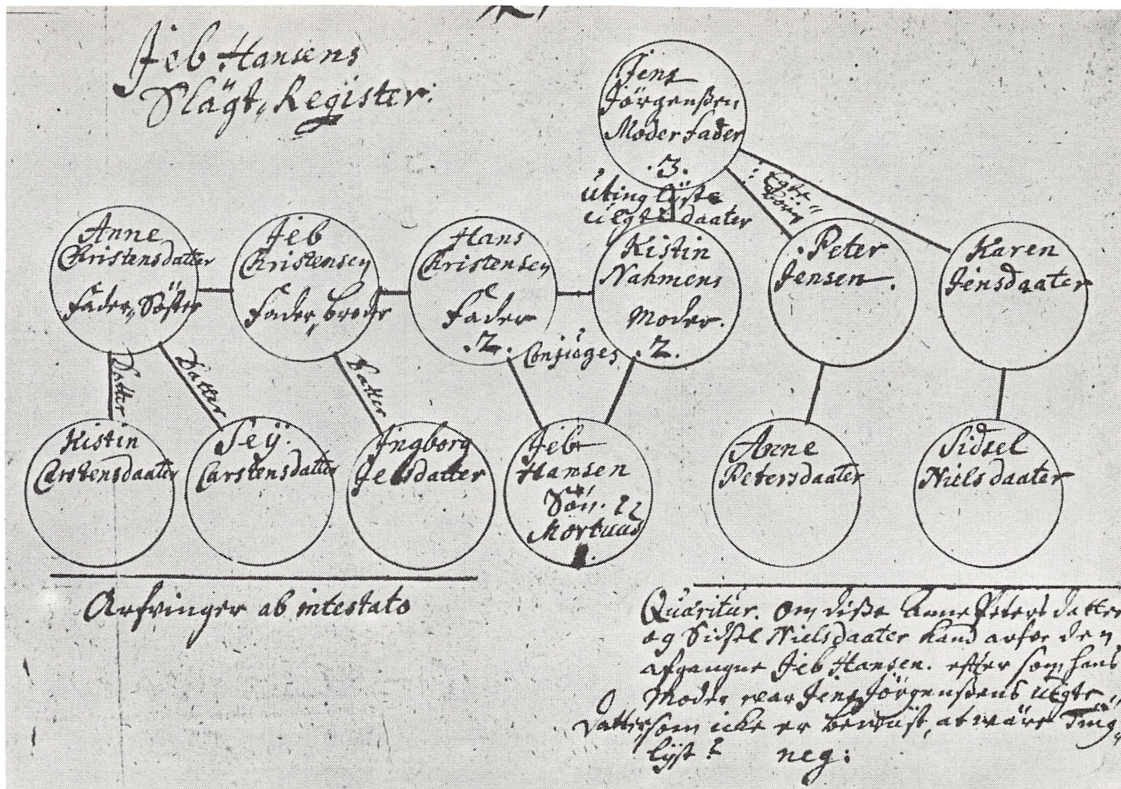 Jeb Hansens
Slägt, Register:
Jens
Jörgenßen
Moder fader
.3.
Uting lyste
uegte daater
Egte
börn
Anne
Christensdatter
Fader, Söster
Jeb
Christensen
Fader, broder
Hans
Christensen
Fader
.2.
Conjuges
Kistin
Nahmens
Moder.
.2.
Peter
Jensen.
Karen
Jensdaater
Datter
Datter
Datter
Kistin
Carstensdaater
Seÿ.
Carstensdatter
Ingborg
Jebsdatter
Jeb
Hansen
Sön.
Mortuus
1.
Anne
Petersdaater
Sidsel
Nielsdaater
Arfvinger ab intestato
Quæritur. om diße Anne Peters datter
og Sidsel Nielsdaater kand arfve den
afgangne Jeb Hansen. efter som hans
Moder war Jens Jörgenßens uegte
Datter som icke er bewiist, at wäre Ting
lyst? neg: